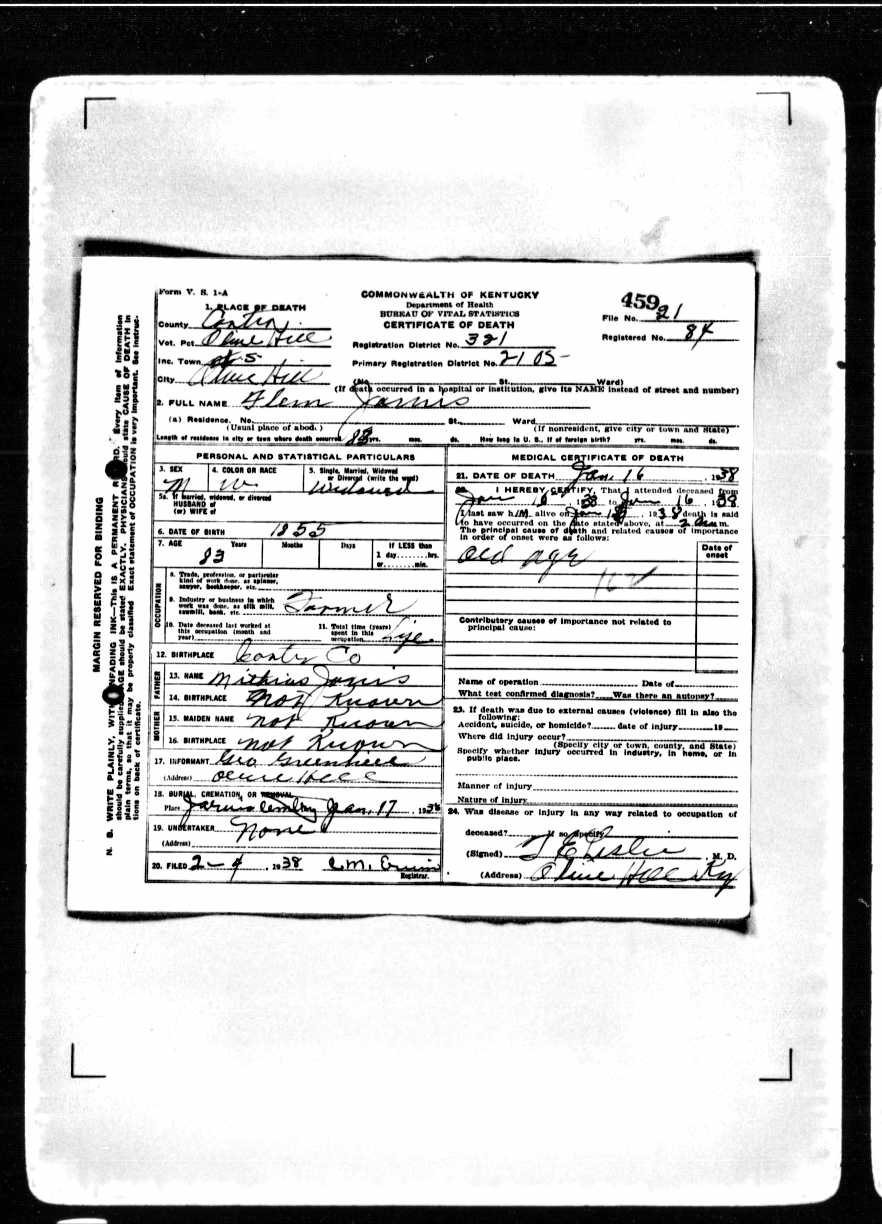 Form V. S. 1-A
COMMONWEALTH OF KENTUCKY
Department of Health
BUREAU OF VITAL STATISTICS
CERTIFICATE OF DEATH
45921
File No.
Registered No. 84
1. PLACE OF DEATH
County Carter
Vot. Pct. Olive Hill
Inc. Town #5
City Olive Hill
Registration District No. 321
Primary Registration District No. 2105
(No. St. Ward)
(If death occurred in a hospital or institution, give its NAME instead of street and number)
2. FULL NAME Flem Jarvis
(a) Residence. No. St., Ward
(Usual place of abode.) (If nonresident, give city or town and State)
Length of residence in city or town where death occurred 83 yrs. mos. ds. How long in U. S., if of foreign birth? yrs. mos. ds.
PERSONAL AND STATISTICAL PARTICULARS
3. SEX M
4. COLOR OR RACE W
5. Single, Married, Widowed or Divorced (write the word) Widowed
5a. If married, widowed, or divorced
HUSBAND of
(or) WIFE of
6. DATE OF BIRTH 1855
7. AGE Years Months Days If LESS than
83 1 day hrs.
or min.
OCCUPATION
8. Trade, profession, or particular
kind of work done, as spinner,
sawyer, bookkeeper, etc.
9. Industry or business in which
work was done, as silk mill,
sawmill, bank, etc. Farmer
10. Date deceased last worked at
this occupation (month and
year)
11. Total time (years)
spent in this
occupation Life
12. BIRTHPLACE Carter Co
FATHER
13. NAME Mathias Jarvis
14. BIRTHPLACE Not Known
MOTHER
15. MAIDEN NAME Not Known
16. BIRTHPLACE Not Known
17. INFORMANT Geo Greenhill
(Address) Olive Hill
18. BURIAL, CREMATION, OR REMOVAL
Place Jarvis Cemetery Jan. 17, 1938
19. UNDERTAKER None
(Address)
20. FILED 2-4, 1938 C.M. Erwin
Registrar.
MEDICAL CERTIFICATE OF DEATH
21. DATE OF DEATH Jan. 16, 1938
22. I HEREBY CERTIFY, That I attended deceased from
Jan 16, 1938 to Jan 16, 1938
I last saw him alive on Jan, 1938 death is said
to have occurred on the date stated above, at 2 am.
The principal cause of death and related causes of importance
in order of onset were as follows:
Date of
onset
Old age
162
Contributory causes of importance not related to
principal cause:
Name of operation Date of
What test confirmed diagnosis? Was there an autopsy?
23. If death was due to external causes (violence) fill in also the
following:
Accident, suicide, or homicide? date of injury 19
Where did injury occur?
(Specify city or town, county, and State)
Specify whether injury occurred in industry, in home, or in
public place.
Manner of injury
Nature of injury
24. Was disease or injury in any way related to occupation of
deceased? If so specify
(Signed) T E Leslie M. D.
(Address) Olive Hill Ky
MARGIN RESERVED FOR BINDING
N. B. WRITE PLAINLY, WITH UNFADING INK—This IS A PERMANENT RECORD. Every item of information
should be carefully supplied. AGE should be stated EXACTLY. PHYSICIANS should state CAUSE OF DEATH in
plain terms, so that it may be properly classified. Exact statement of OCCUPATION is very important. See instruc-
tions on back of certificate.